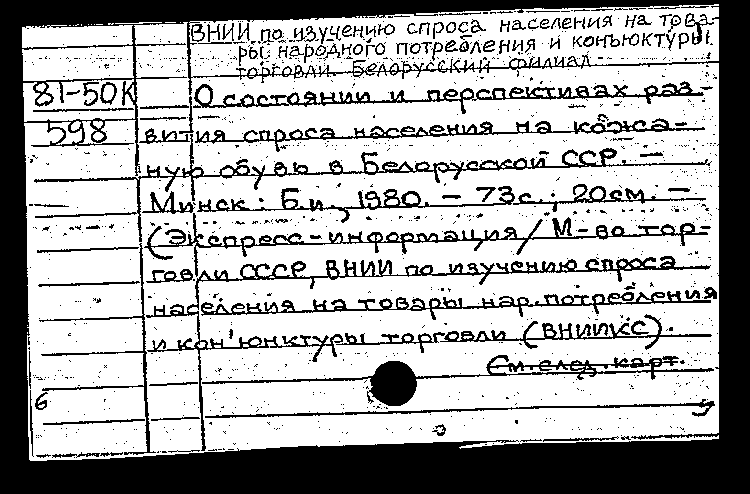 ВНИИ по изучению спроса населения на това-
ры народного потребления и конъюктуры
торговли. Белорусский филиал.
81-50К О состоянии и перспективах раз-
598 вития спроса населения на кожа-
ную обувь в Белорусской ССР. —
Минск: Б.и., 1980. — 73с.; 20см. —
(Экспресс-информация / М-во тор-
говли СССР, ВНИИ по изучению спроса
населения на товары нар. потребления
и кон'юнктуры торговли (ВНИИКС).
См. след. карт.
6